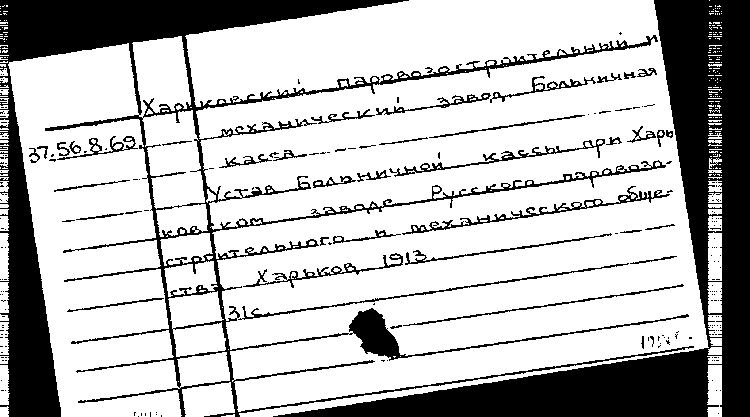 Харьковский паровозостроительный и
механический завод. Больничная
37.56.8.69.
касса
Устав Больничной кассы при Харь
ковском заводе Русского паровозо-
строительного и механического обще-
ства Харьков 1913.
31с.